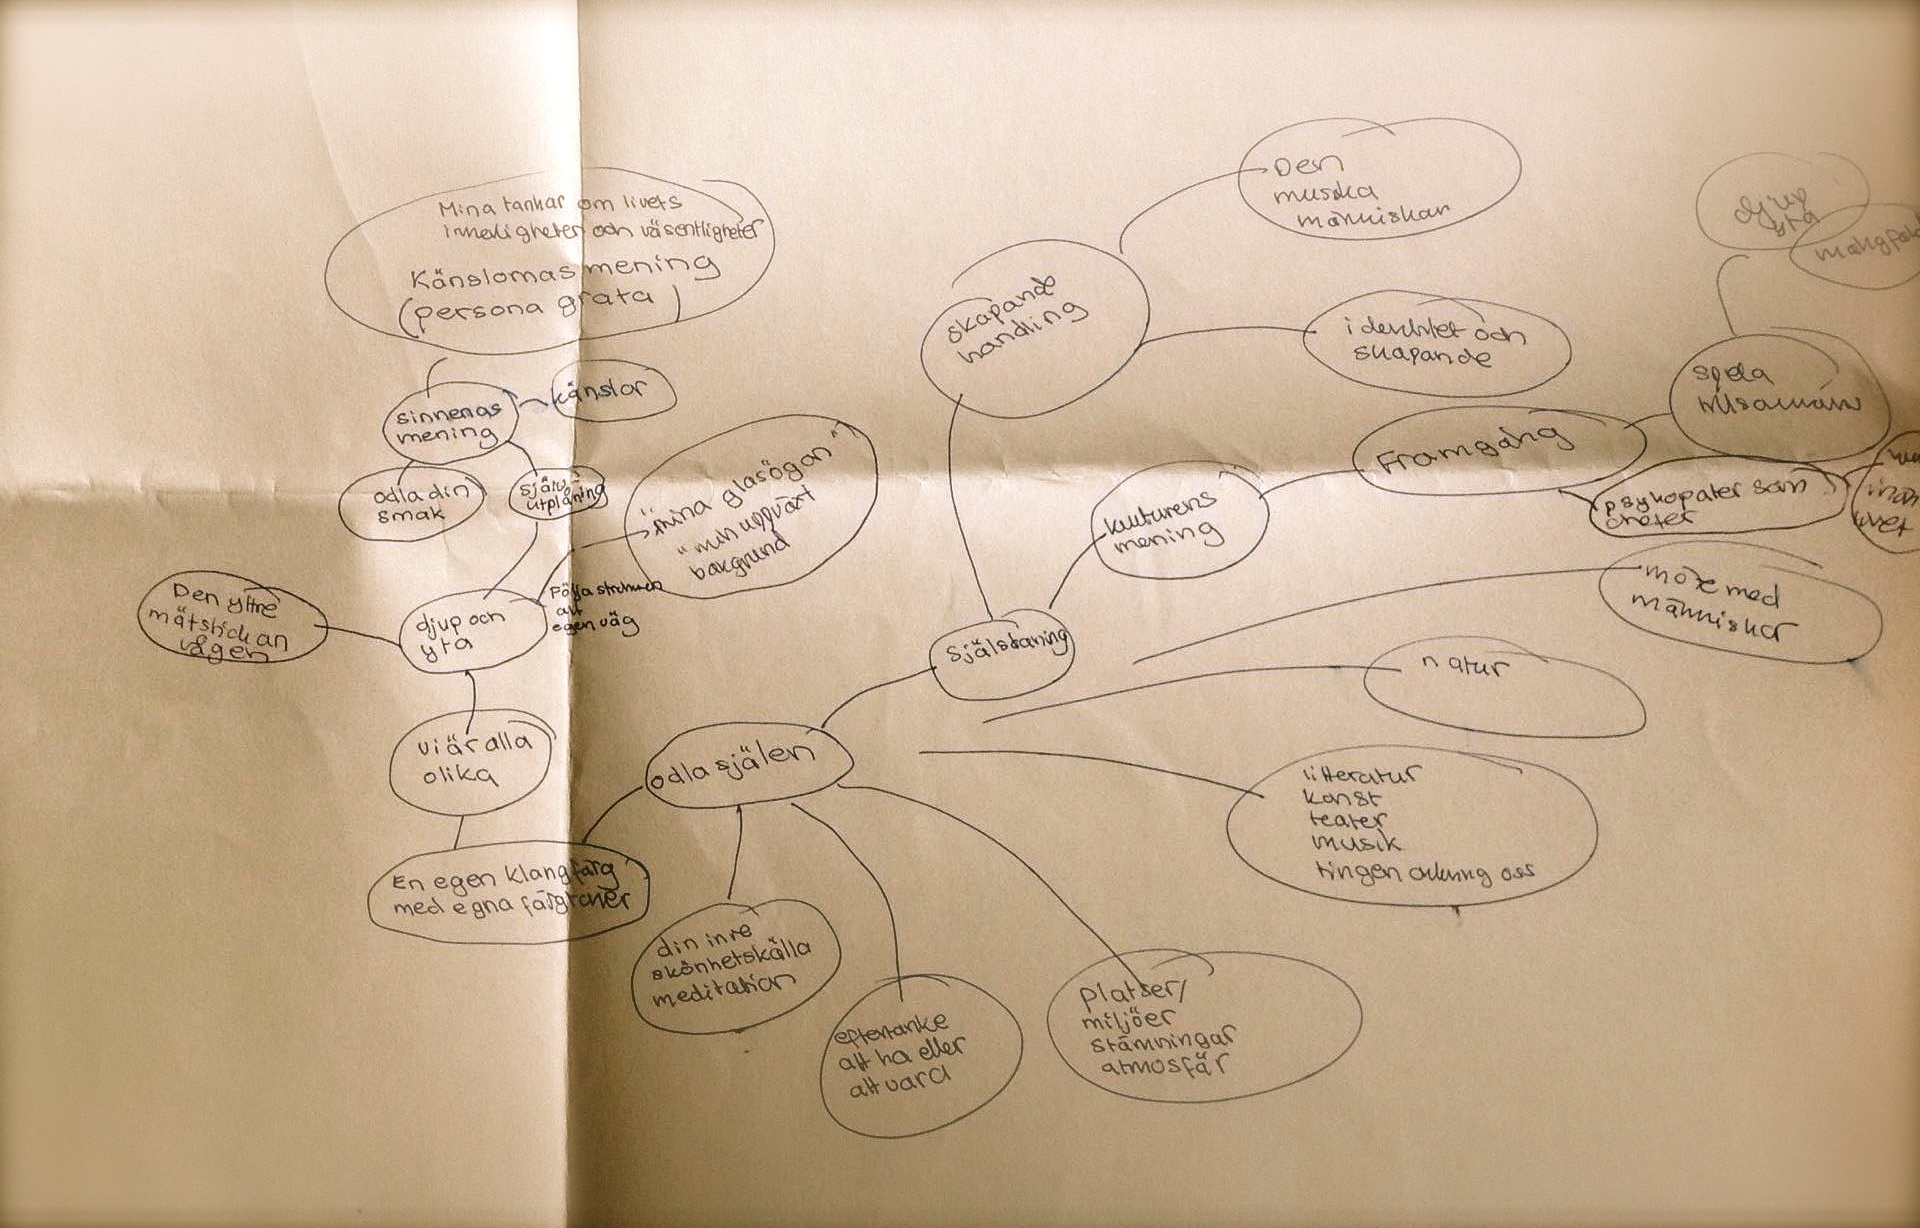 Mina tankar om livets
innerligheter och väsentligheter
Känslornas mening
(persona grata)
sinnenas
mening
känslor
odla din
smak
själv
utplåning
"mina glasögon"
"min uppväxt
bakgrund
Följa strömmen
att
egen väg
Den yttre
mätstickan
vågen
djup och
yta
vi är alla
olika
En egen klangfärg
med egna färgtoner
odla själen
din inre
skönhetskälla
meditation
eftertanke
att ha eller
att vara
platser/
miljöer
stämningar
atmosfär
själsdaning
skapande
handling
Den
musiska
människan
identitet och
skapande
kulturens
mening
Framgång
spela
djup
yta
psykopater som
chefer
livet
möte med
människor
natur
litteratur
konst
teater
musik
tingen omkring oss